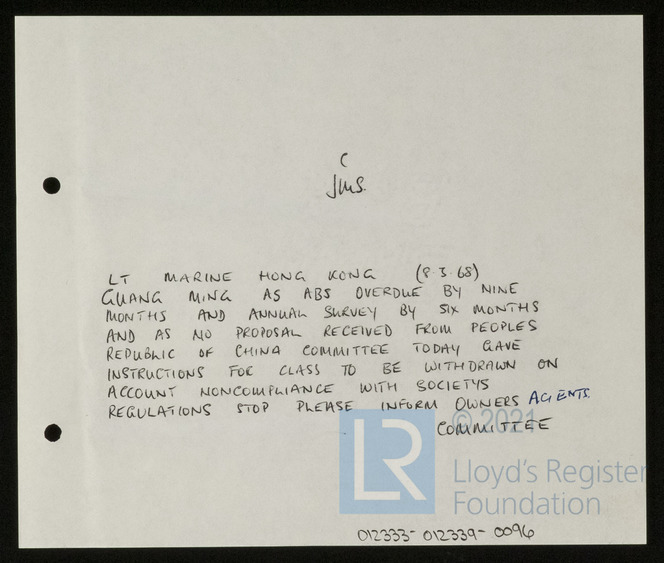 C
JMS.
LT MARINE HONG KONG (8.3.68)
GUANG MING AS ABS OVERDUE BY NINE
MONTHS AND ANNUAL SURVEY BY SIX MONTHS
AND AS NO PROPOSAL RECEIVED FROM PEOPLES
REPUBLIC OF CHINA COMMITTEE TODAY GAVE
INSTRUCTIONS FOR CLASS TO BE WITHDRAWN ON
ACCOUNT NONCOMPLIANCE WITH SOCIETYS
REGULATIONS STOP PLEASE INFORM OWNERS AGENTS.
COMMITTEE
© 2021
LR
Lloyd's Register
Foundation
012333-012339-0096